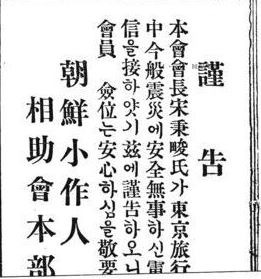 謹告
本會會長宋秉畯氏가東京旅行
中今般震災에安全無事하신電
信을接하얏기玆에謹告하오니
會員 僉位는安心하심을敬要
朝鮮小作人
相助會本部